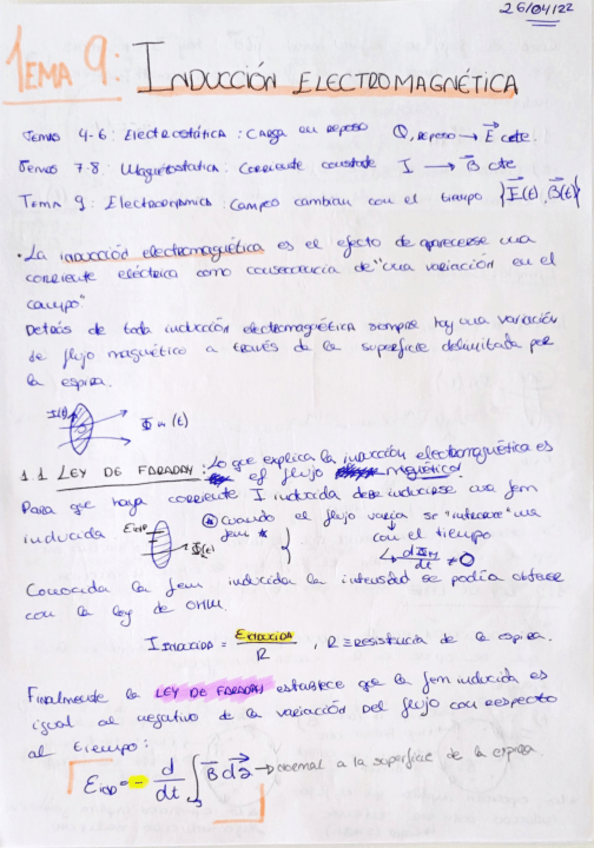 26/04/22
TEMA 9: INDUCCIÓN ELECTROMAGNÉTICA
Temas 4-6: Electrostática: Carga en reposo Q, reposo → E⃗ cte.
Temas 7-8: Magnetostatica: Corriente constante I → B⃗ cte
Tema 9: Electrodinámica: Campos cambian con el tiempo {E⃗(t), B⃗(t)}
· La inducción electromagnética es el efecto de aparecerse una
corriente eléctrica como consecuencia de "una variación en el
campo"
Detrás de toda inducción electromagnética siempre hay una variación
de flujo magnético a través de la superficie delimitada por
la espira.
I(t) Φm (t)
1.1 LEY DE FARADAY: Lo que explica la inducción electromagnética es
el flujo magnético!
Para que haya corriente I inducida debe inducirse una fem
inducida Eind Φ(t) * Cuando el flujo varía se "induce" una
fem * } con el tiempo
↳ dΦM/dt ≠ 0
Conocida la fem inducida la intensidad se podía obtener
con la ley de OHM.
I INDUCIDA = E INDUCIDA / R , R ≡ resistencia de la espira.
Finalmente la LEY DE FARADAY establece que la fem inducida es
igual al negativo de la variación del flujo con respecto
al tiempo:
Eind = - d/dt ∫s B⃗ da⃗ → normal a la superficie de la espira